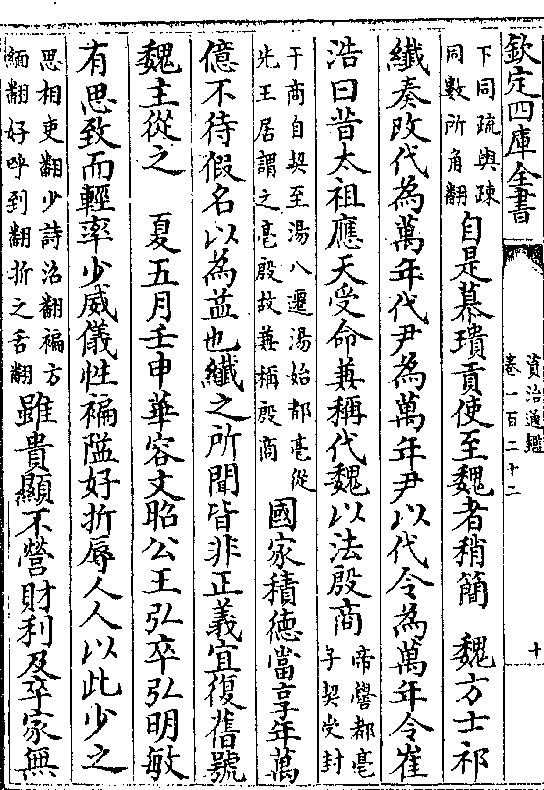 欽定四庫全書
資治通鑑
卷一百二十二
十
下同疏與疎
同數所角翻
自是慕璝貢使至魏者稍簡　魏方士祁
纖奏改代為萬年代尹為萬年尹以代令為萬年令崔
浩曰昔太祖應天受命兼稱代魏以法殷商
帝嚳都亳
子契受封
于商自契至湯八遷湯始都亳從
先王居謂之亳殷故兼稱殷商
國家積德當享年萬
億不待假名以為益也纖之所聞皆非正義宜復舊號
魏主從之　夏五月壬申華容文昭公王弘卒弘明敏
有思致而輕率少威儀性褊隘好折辱人人以此少之
思相吏翻少詩沼翻褊方
緬翻好呼到翻折之舌翻
雖貴顯不營財利及卒家無